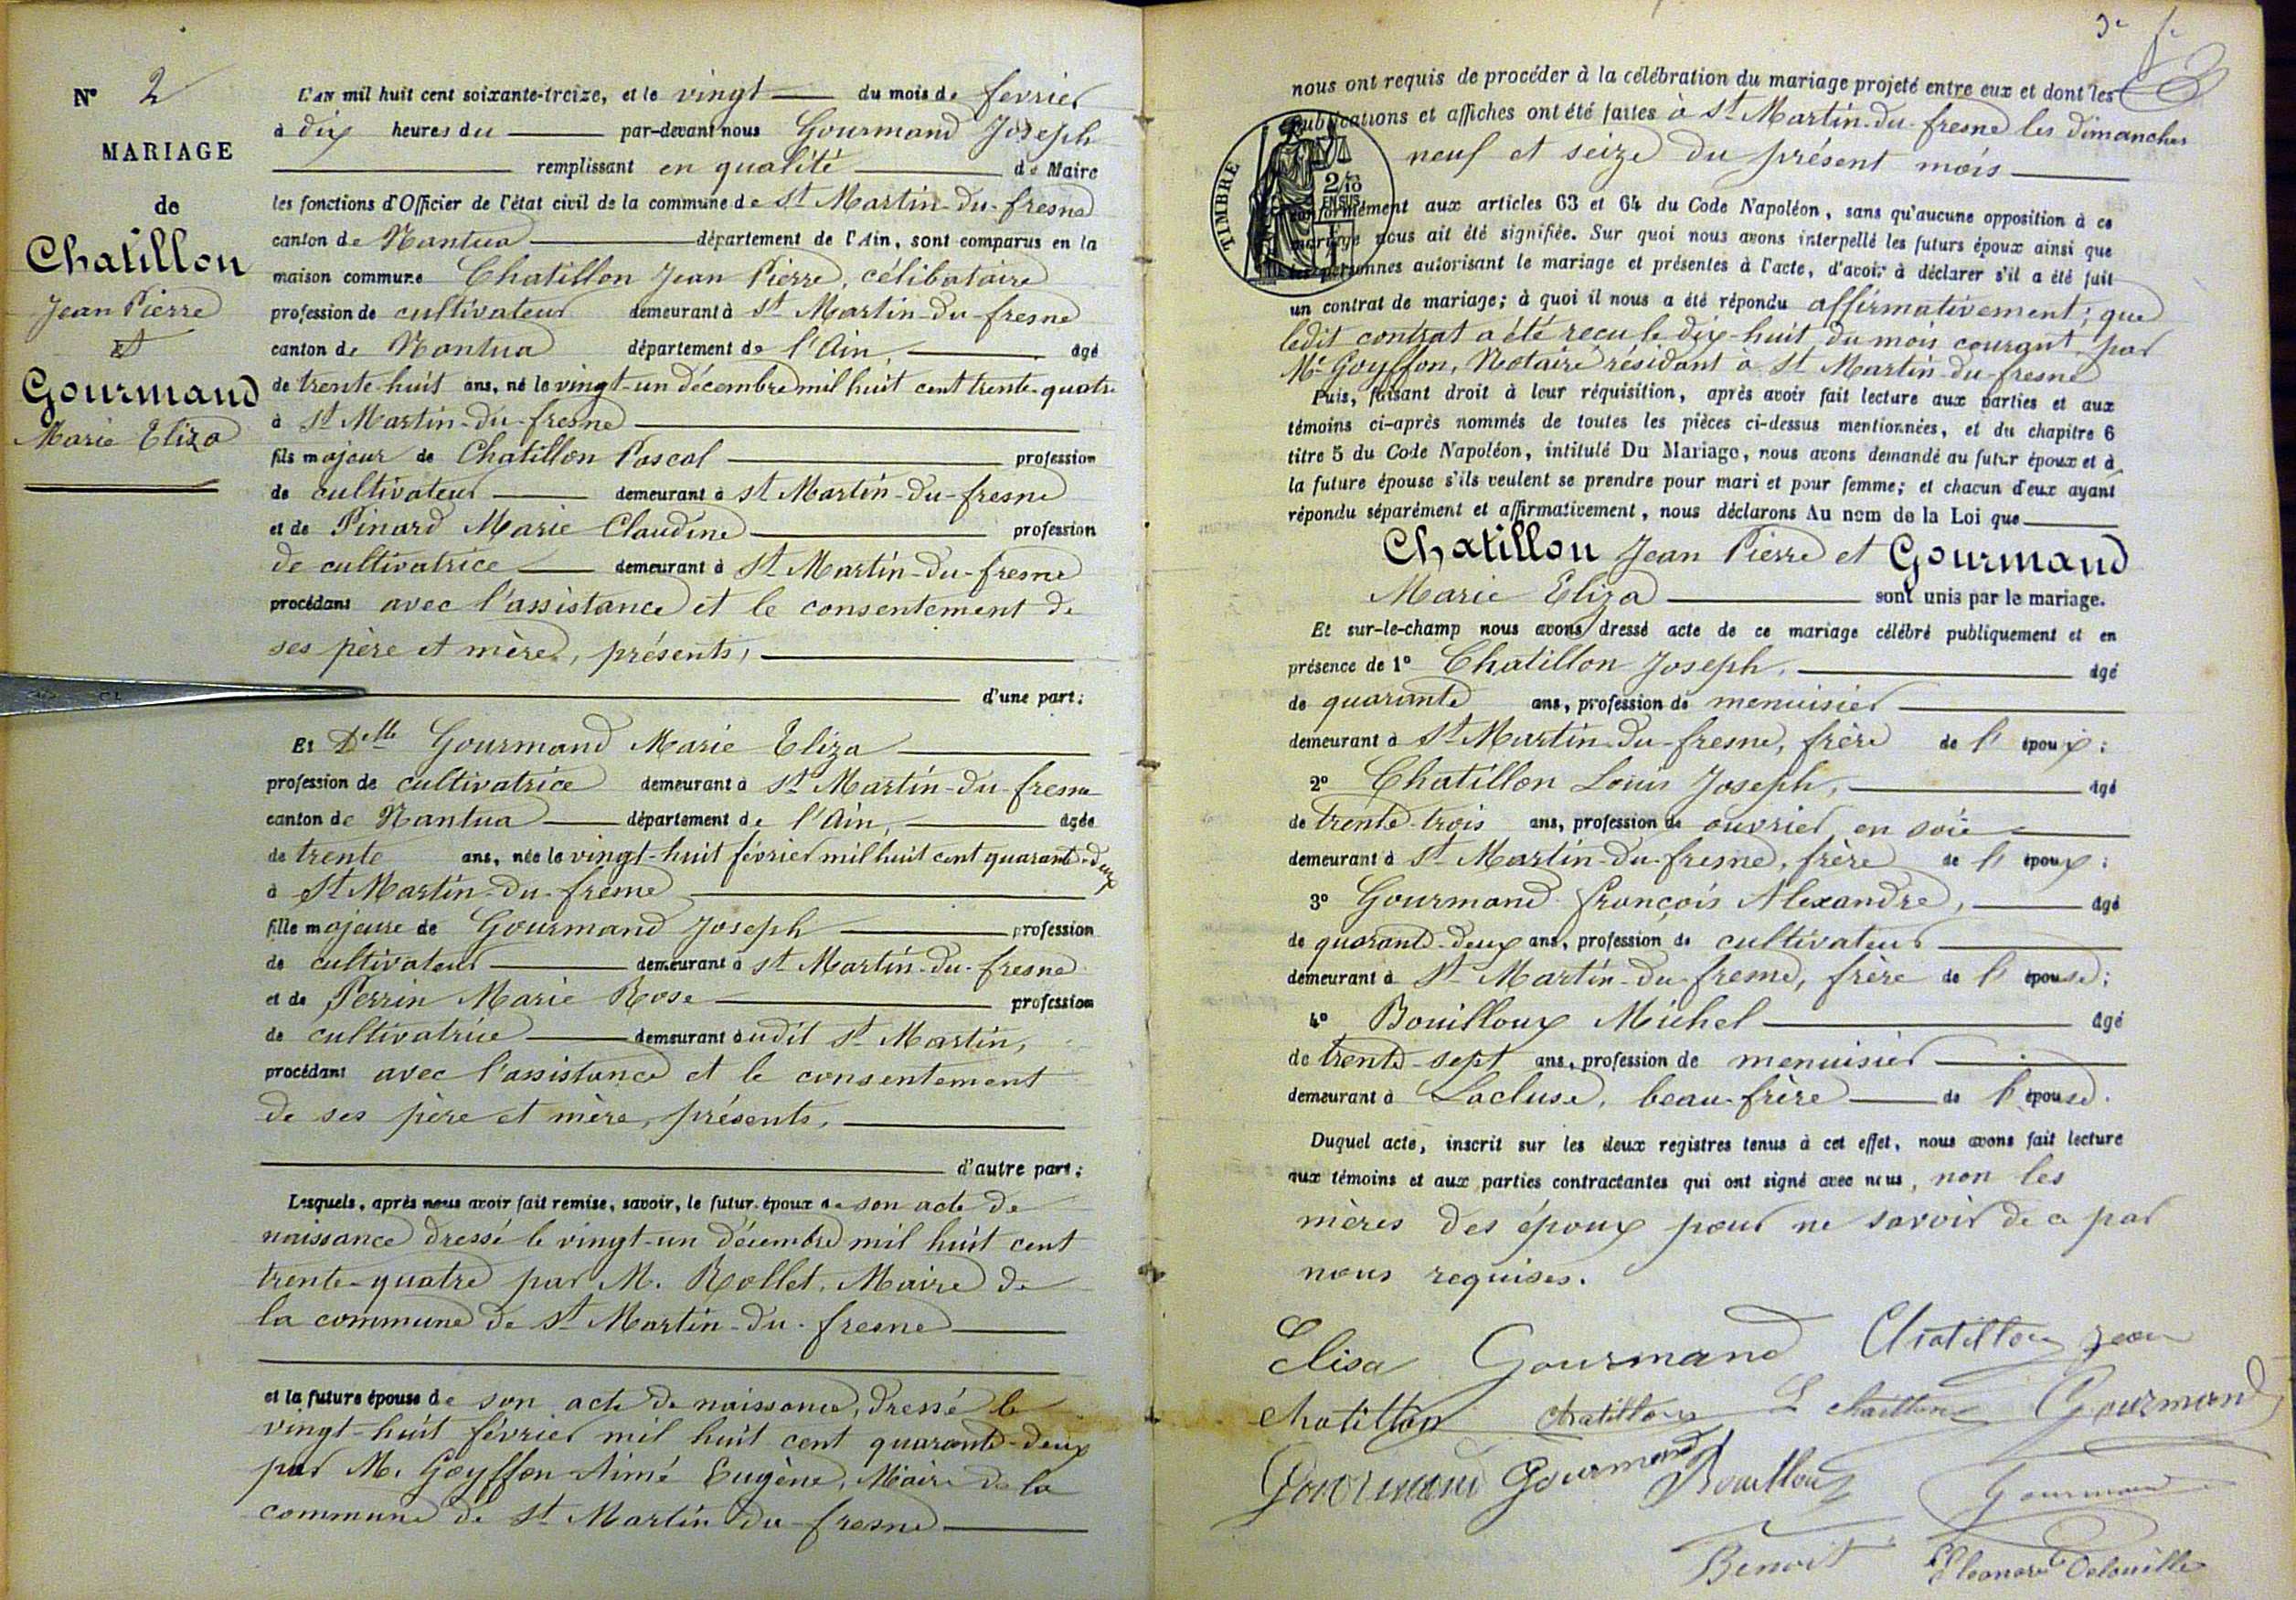 N° 2
MARIAGE
de
Chatillon
Jean Pierre
et
Gourmand
Marie Eliza
L'AN mil huit cent soixante-treize, et le vingt du mois de fevrier
à dix heures du par-devant nous Gourmand Joseph
remplissant en qualité de Maire
les fonctions d'Officier de l'état civil de la commune de St Martin-du-fresne
canton de Nantua département de l'Ain, sont comparus en la
maison commune Chatillon Jean Pierre, célibataire
profession de cultivateur demeurant à St Martin-du-fresne
canton de Nantua département de l'Ain, âgé
de trente-huit ans, né le vingt-un décembre mil huit cent trente-quatre
à St Martin-du-fresne
fils majeur de Chatillon Pascal profession
de cultivateur demeurant à St Martin-du-fresne
et de Pinard Marie Claudine profession
de cultivatrice demeurant à St Martin-du-fresne
procédant avec l'assistance et le consentement de
ses père et mère, présents,
d'une part;
Et Delle Gourmand Marie Eliza
profession de cultivatrice demeurant à St Martin-du-fresne
canton de Nantua département de l'Ain, âgée
de trente ans, née le vingt-huit février mil huit cent quarante-deux
à St Martin-du-fresne
fille majeure de Gourmand Joseph profession
de cultivateur demeurant à St Martin-du-fresne
et de Perrin Marie Rose profession
de cultivatrice demeurant audit St Martin,
procédant avec l'assistance et le consentement
de ses père et mère, présents,
d'autre part;
Lesquels, après nous avoir fait remise, savoir, le futur époux de son acte de
naissance dressé le vingt-un décembre mil huit cent
trente-quatre par M. Rollet, Maire de
la commune de St Martin-du-fresne
et la future épouse de son acte de naissance, dressé le
vingt-huit février mil huit cent quarante-deux
par M. Goyffon Aimé Eugène, Maire de la
commune de St Martin du-fresne
nous ont requis de procéder à la célébration du mariage projeté entre eux et dont les
publications et affiches ont été faites à St Martin-du-fresne les dimanches
neuf et seize du présent mois
TIMBRE
2/10
EN SUS
conformément aux articles 63 et 64 du Code Napoléon, sans qu'aucune opposition à ce
mariage nous ait été signifiée. Sur quoi nous avons interpellé les futurs époux ainsi que
les personnes autorisant le mariage et présentes à l'acte, d'avoir à déclarer s'il a été fait
un contrat de mariage; à quoi il nous a été répondu affirmativement; que
ledit contrat a été recu le dix-huit du mois courant par
Me Goyffon, Notaire résidant à St Martin-du-fresne
Puis, faisant droit à leur réquisition, après avoir fait lecture aux parties et aux
témoins ci-après nommés de toutes les pièces ci-dessus mentionnées, et du chapitre 6
titre 5 du Code Napoléon, intitulé Du Mariage, nous avons demandé au futur époux et à
la future épouse s'ils veulent se prendre pour mari et pour femme; et chacun d'eux ayant
répondu séparément et affirmativement, nous déclarons Au nom de la Loi que
Chatillon Jean Pierre et Gourmand
Marie Eliza sont unis par le mariage.
Et sur-le-champ nous avons dressé acte de ce mariage célébré publiquement et en
présence de 1° Chatillon Joseph, âgé
de quarante ans, profession de menuisier
demeurant à St Martin-du-fresne, frère de l'époux;
2° Chatillon Louis Joseph, âgé
de trente-trois ans, profession de ouvrier en soie
demeurant à St Martin-du-fresne, frère de l'époux;
3° Gourmand François Alexandre, âgé
de quarante-deux ans, profession de cultivateur
demeurant à St Martin-du-fresne, frère de l'épouse;
4° Bouilloux Michel âgé
de trente-sept ans, profession de menuisier
demeurant à Lacluse, beau-frère de l'épouse.
Duquel acte, inscrit sur les deux registres tenus à cet effet, nous avons fait lecture
aux témoins et aux parties contractantes qui ont signé avec nous, non les
mères des époux pour ne savoir de ce par
nous requises.
Elisa Gourmand Chatillon Jean
Chatillon Chatillon L Chatillon Gourmand
Gourmand Gourmand Bouilloux Gourmand
Benoit Eléonore Delouille